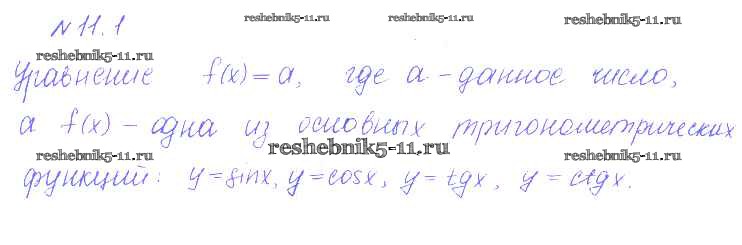 reshebnik5-11.ru reshebnik5-11.ru
№ 11.1
reshebnik5-11.ru
Уравнение f(x) = a, где a - данное число,
а f(x) - одна из основных тригонометрических
reshebnik5-11.ru reshebnik5-11.ru reshebnik5-11.ru
функций: y = sinx, y = cosx, y = tgx, y = ctgx.